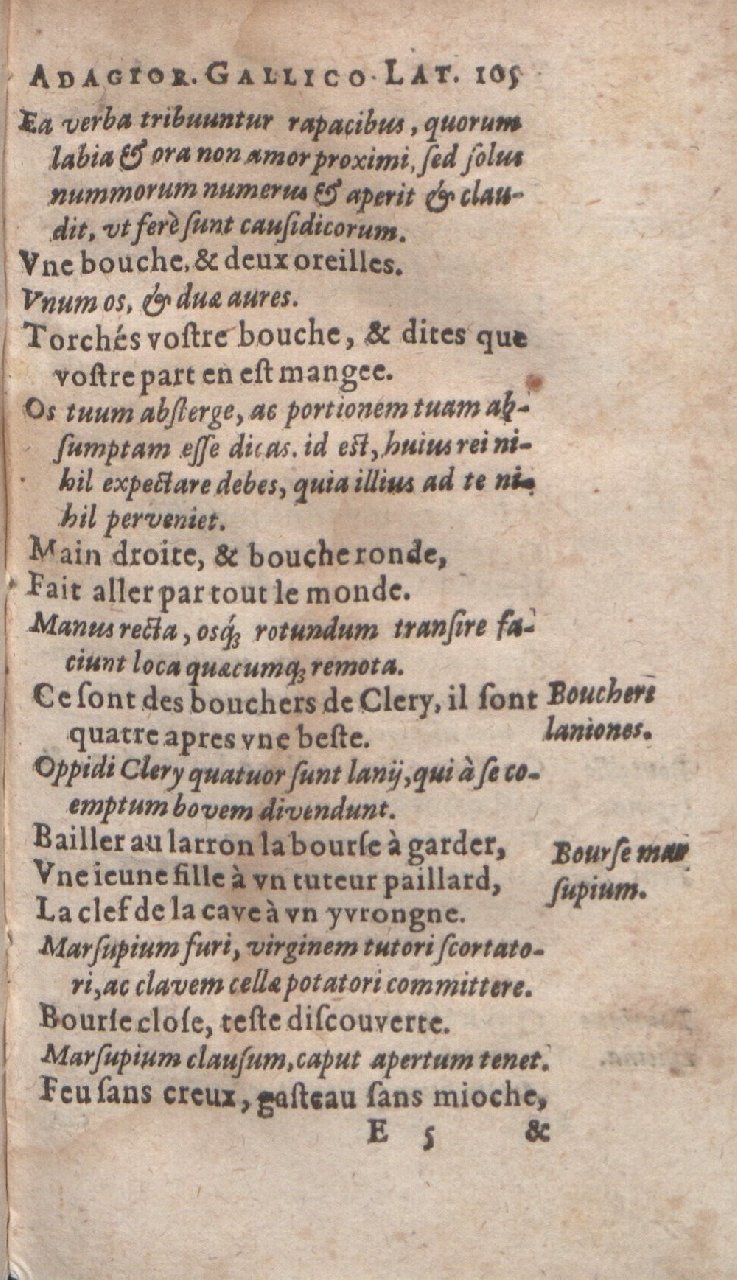 ADAGIOR. GALLICO LAT. 105
Ea verba tribuuntur rapacibus, quorum
labia & ora non amor proximi, sed solus
nummorum numerus & aperit & clau-
dit, vt ferè sunt causidicorum.
Vne bouche, & deux oreilles.
Vnum os, & duæ aures.
Torchés vostre bouche, & dites que
vostre part en est mangee.
Os tuum absterge, ac portionem tuam ab-
sumptam esse dicas. id est, huius rei ni-
hil expectare debes, quia illius ad te ni-
hil perveniet.
Main droite, & bouche ronde,
Fait aller par tout le monde.
Manus recta, osq́ꝫ rotundum transire fa-
ciunt loca quæcumqꝫ remota.
Ce sont des bouchers de Clery, il sont
quatre apres vne beste.
Bouchers
laniones.
Oppidi Clery quatuor sunt lanij, qui à se co-
emptum bovem divendunt.
Bailler au larron la bourse à garder,
Vne ieune fille à vn tuteur paillard,
La clef de la cave à vn yvrongne.
Bourse mar
supium.
Marsupium furi, virginem tutori scortato-
ri, ac clavem cellæ potatori committere.
Bourse close, teste discouverte.
Marsupium clausum, caput apertum tenet.
Feu sans creux, gasteau sans mioche,
E 5 &